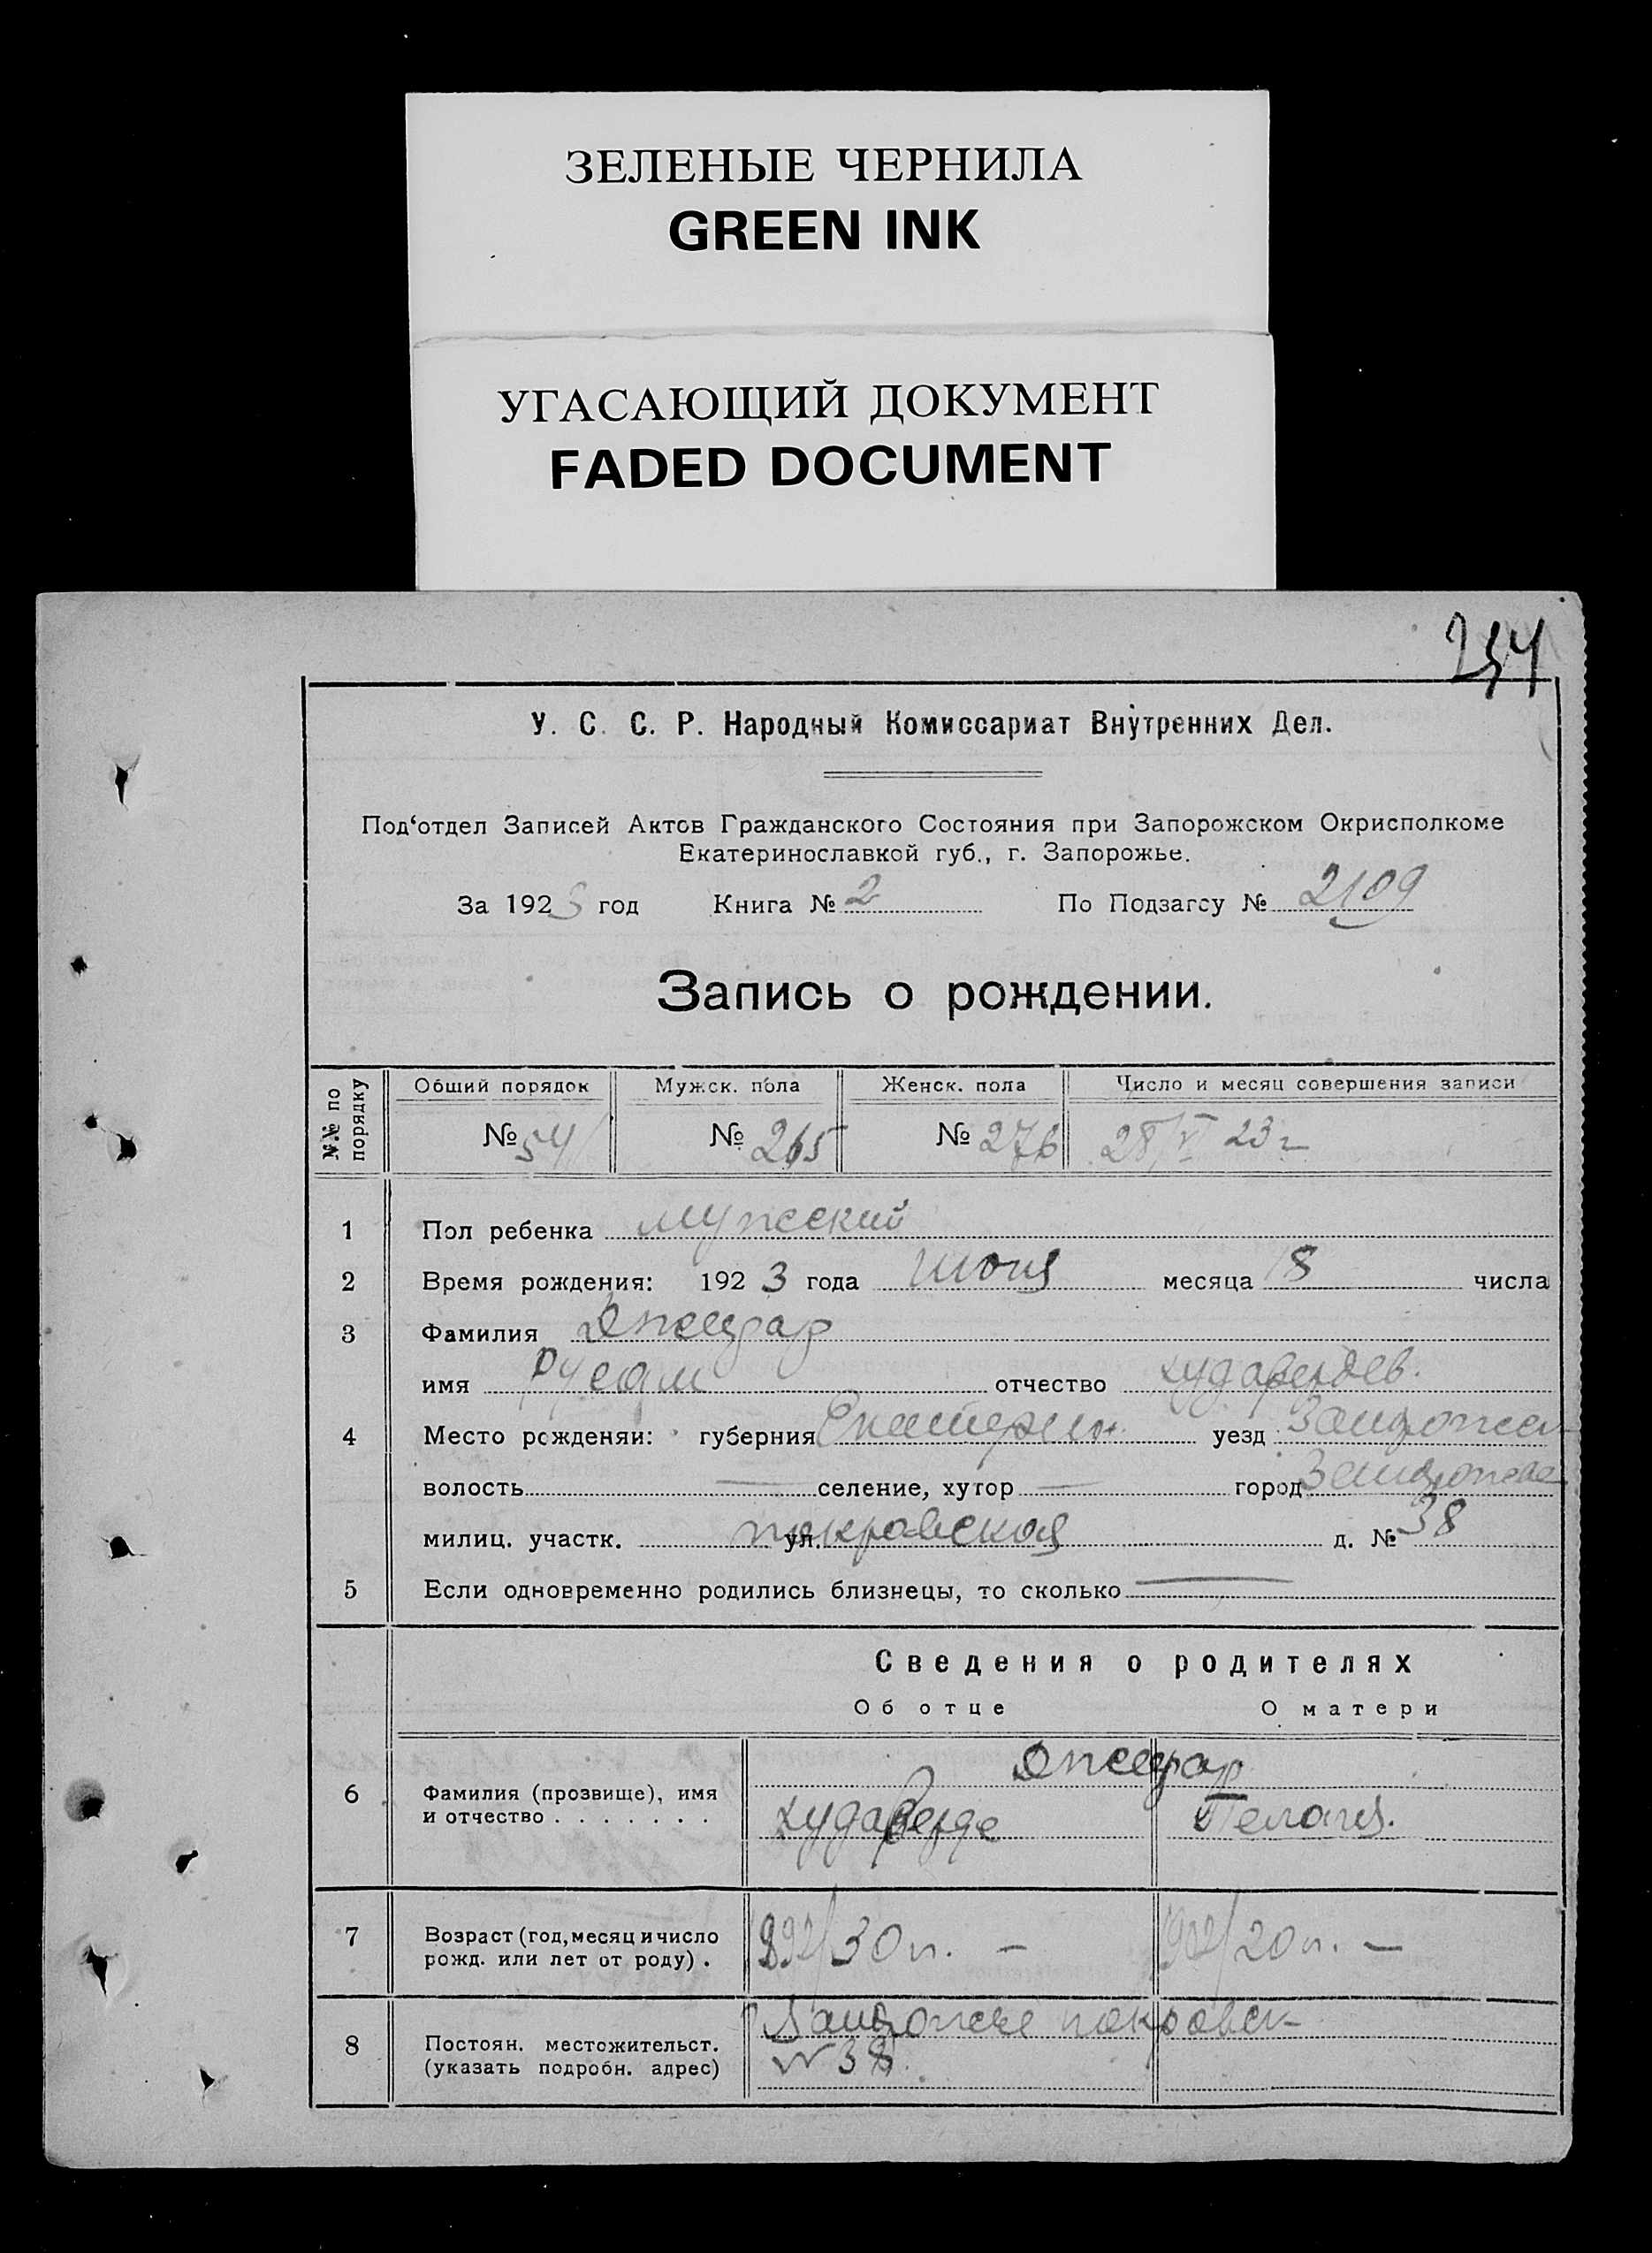 ЗЕЛЕНЫЕ ЧЕРНИЛА
GREEN INK
УГАСАЮЩИЙ ДОКУМЕНТ
FADED DOCUMENT
254
У. С. С. Р. Народный Комиссариат Внутренних Дел.
Под‘отдел Записей Актов Гражданского Состояния при Запорожском Окрисполкоме
Екатеринославкой губ., г. Запорожье.
За 1923 год Книга № 2 По Подзагсу № 2109
Запись о рождении.
№№ по порядку Общий порядок Мужск. пола Женск. пола Число и месяц совершения записи
№ 541 № 265 № 276 28/V 23 г
1 Пол ребенка мужеский
2 Время рождения: 1923 года месяца 8 числа
3 Фамилия
имя отчество худавердев.
4 Место рожденяи: губерния Екатерин. уезд Запорожск
волость — селение, хутор — город Запорожье
милиц. участк. ул. покровская д. № 38
5 Если одновременно родились близнецы, то сколько —
Сведения о родителях
Об отце О матери
6 Фамилия (прозвище), имя
и отчество . . . . . . . худаверде Пелагия.
7 Возраст (год, месяц и число
рожд. или лет от роду) . 892/30 л. — 1902/20 л. —
8 Постоян. местожительст. Запорожье покровск
(указать подробн. адрес) № 38.